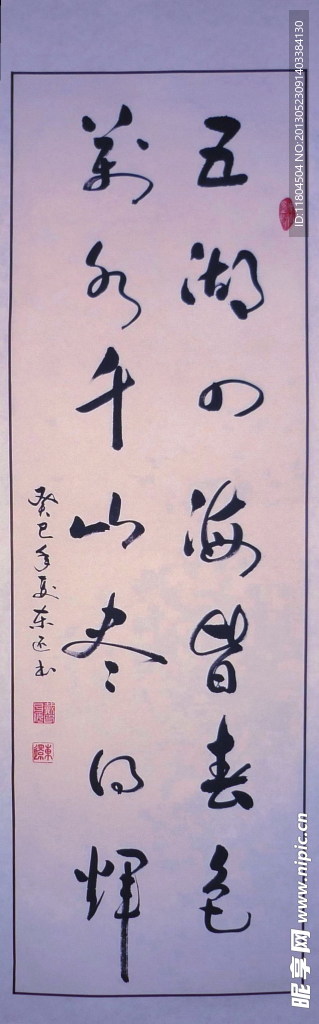 五湖四海皆春色
萬水千山尽得輝
癸巳年夏东还书
ID:11804504 NO:20130523091403384130
昵享网 www.nipic.cn